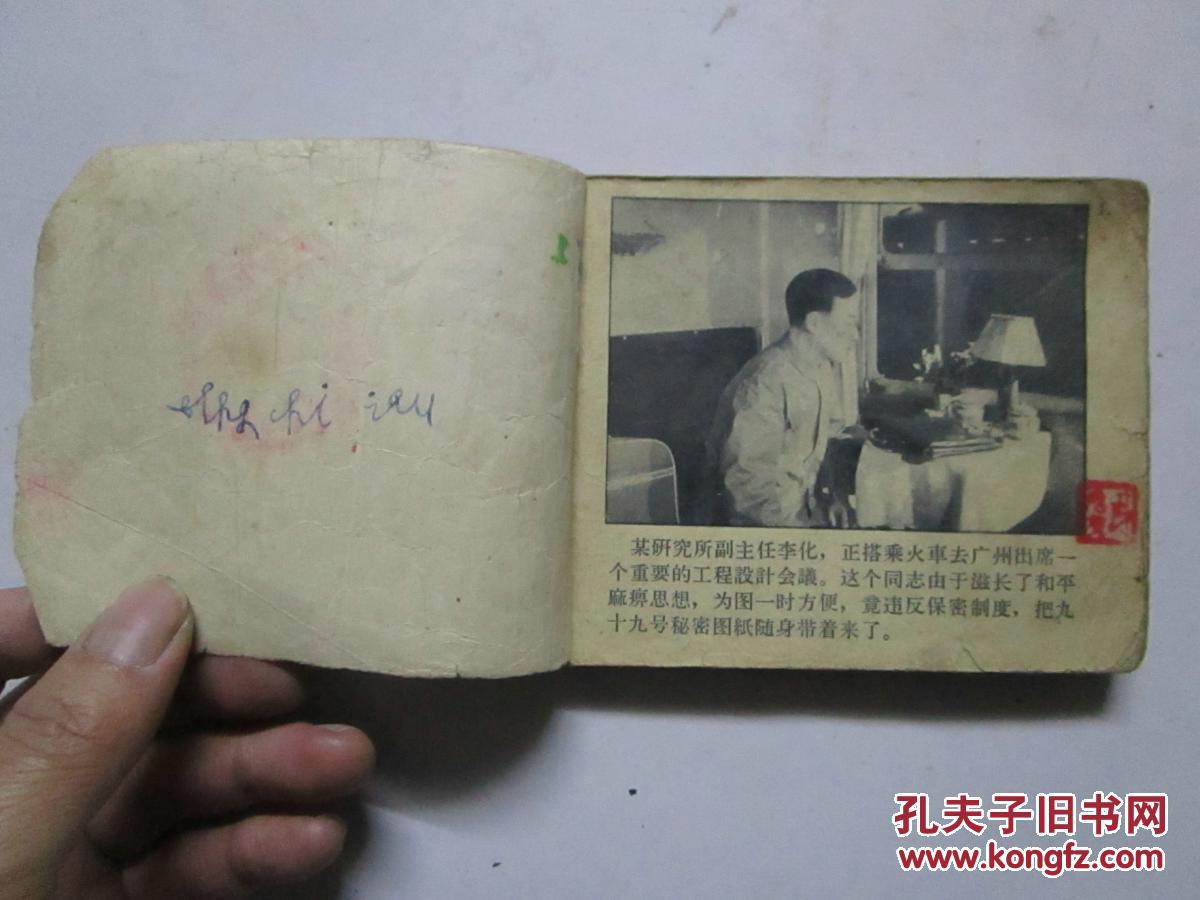 1
某研究所副主任李化，正搭乘火車去广州出席一
个重要的工程設計会議。这个同志由于滋长了和平
麻痹思想，为图一时方便，竟违反保密制度，把九
十九号秘密图紙随身带着来了。
孔夫子旧书网
www.kongfz.com